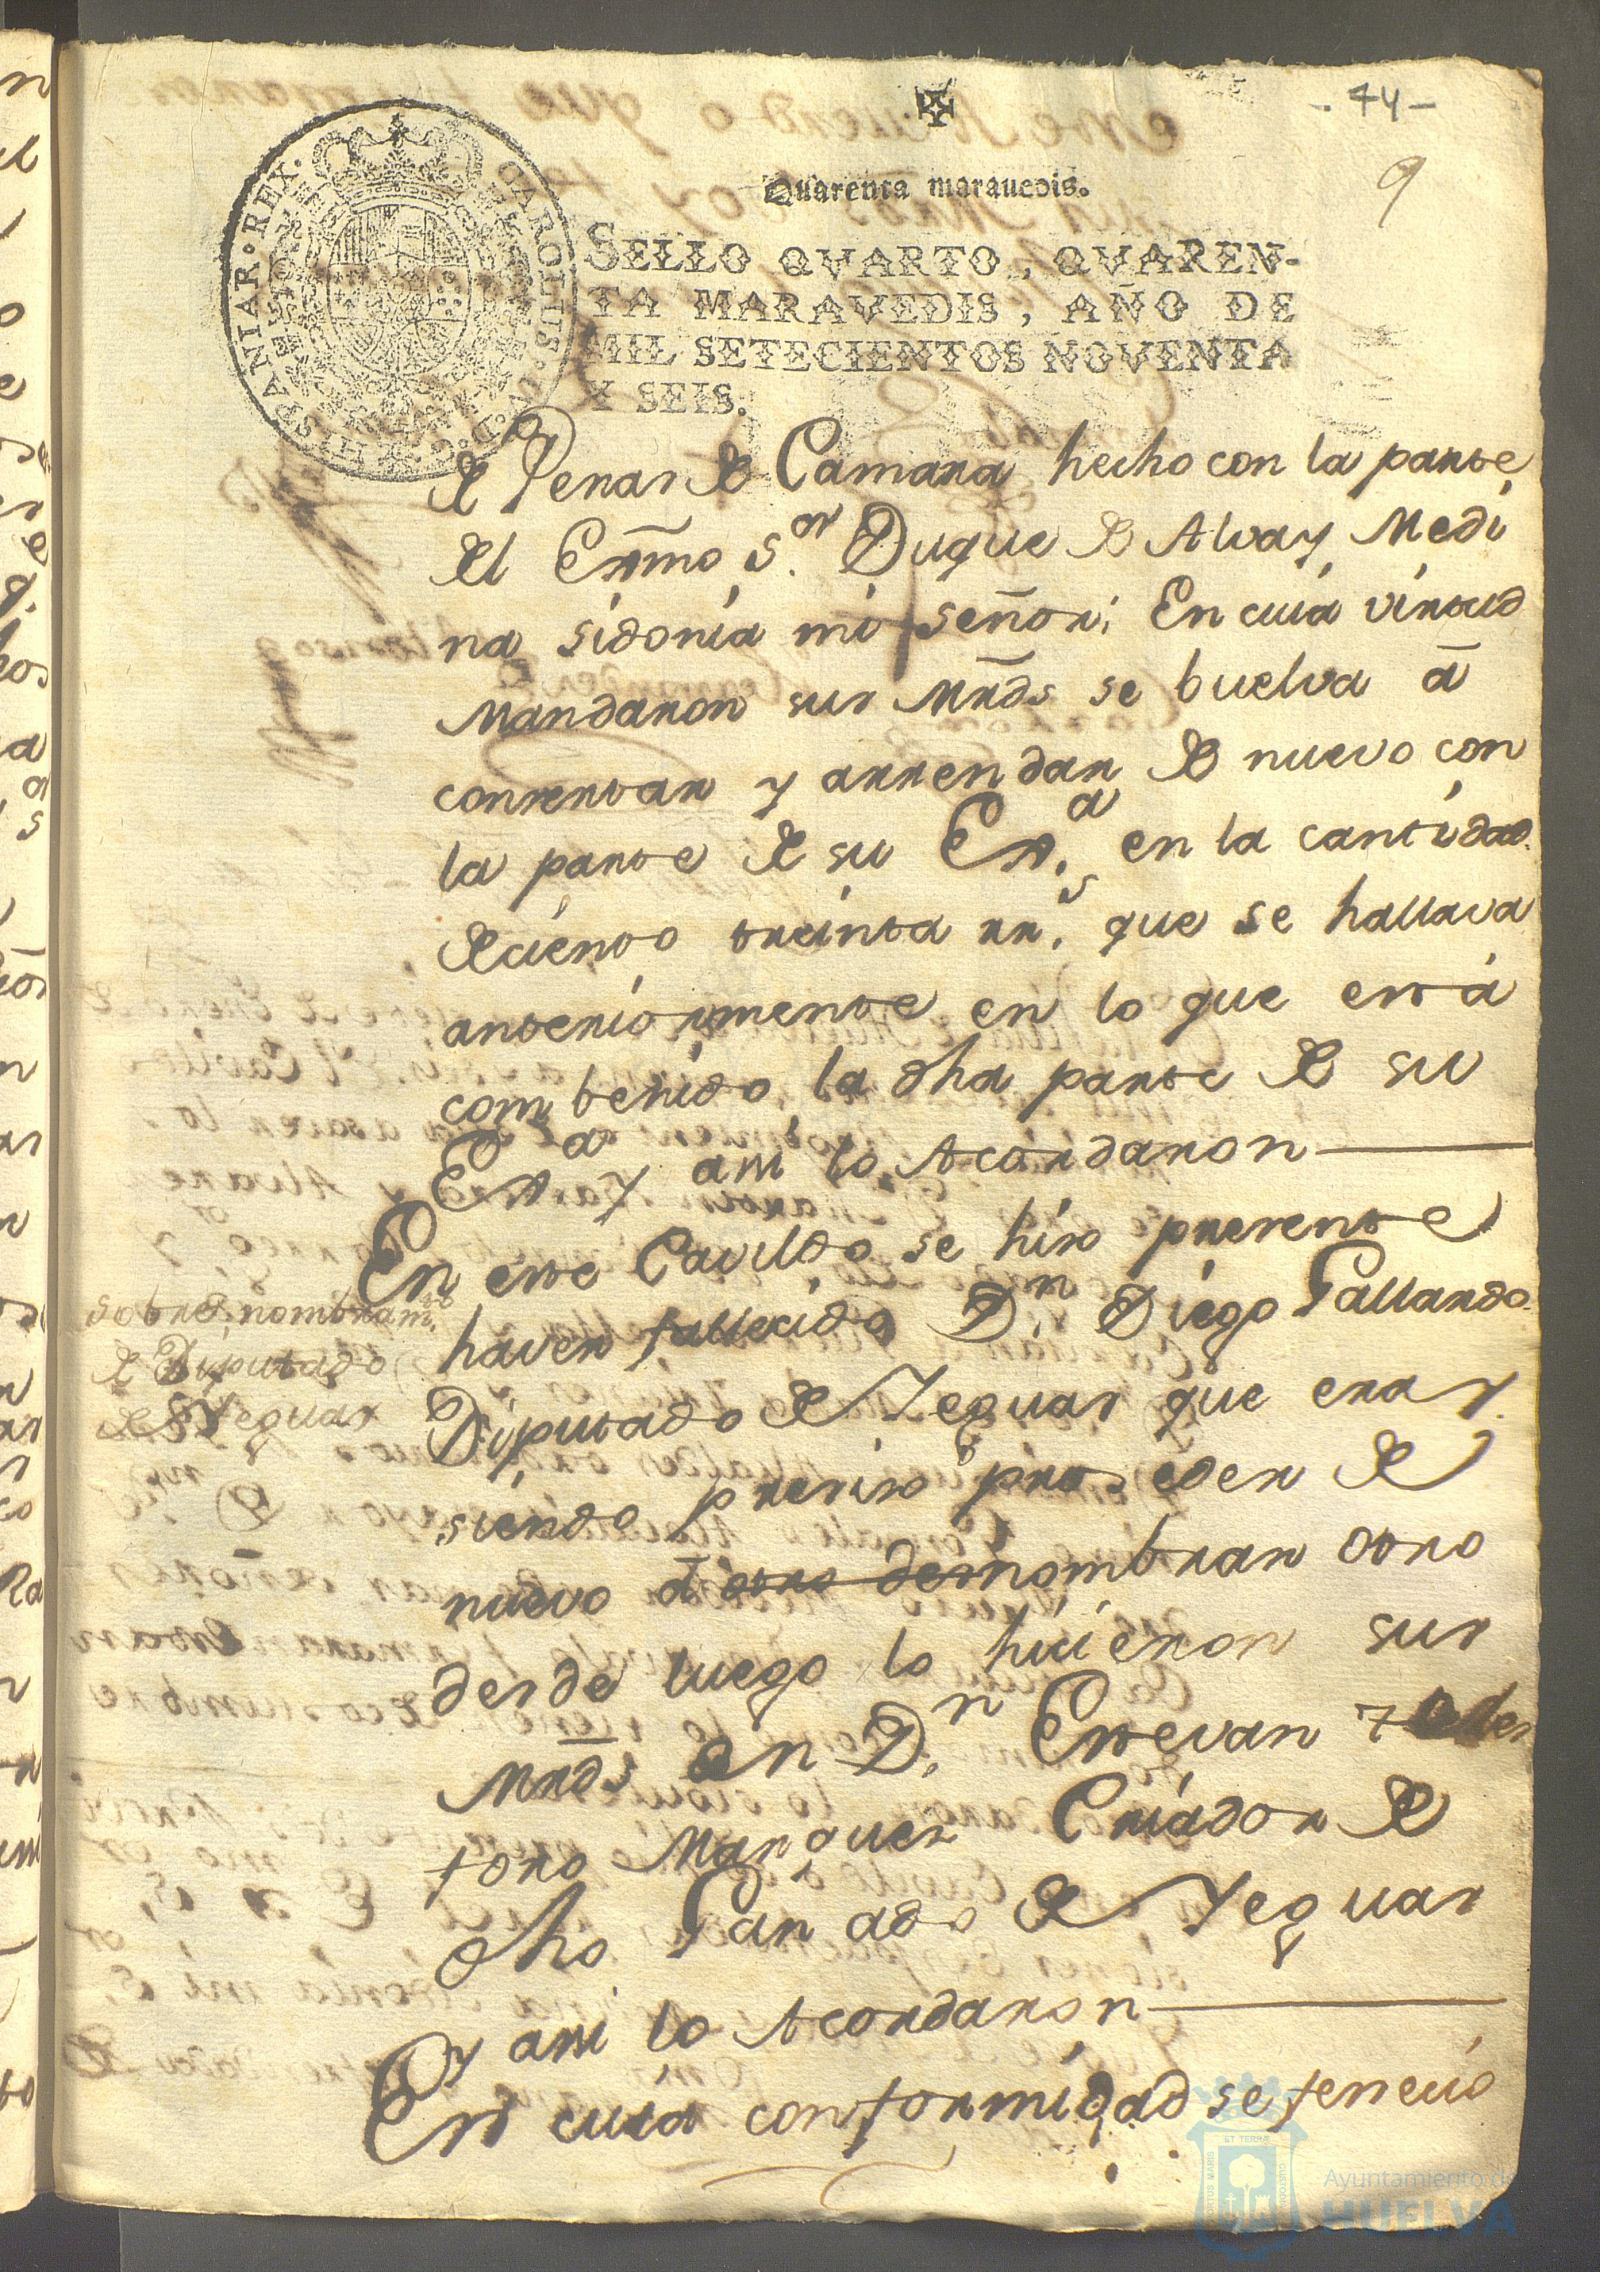 - 74 -
9
Quarenta maravedis.
SELLO QVARTO, QVAREN-
TA MARAVEDIS, AÑO DE
MIL SETECIENTOS NOVENTA
Y SEIS.
CAROLUS·IV·D·G·HISPANIAR·REX·
de Penas de Camara hecho con la parte
del Exmo. Sor. Duque de Alva y Medi
na sidonia mi señor; En cuia virtud
Mandaron sus Mrds se buelva â
consertar y arrendar de nuevo con
la parte de su Exa. en la cantidad
de ciento treinta rrs. que se hallava
anteriormente en lo que está
combenido, la dha parte de su
Exa. y assi lo Acordaron
En este Cavildo se hiso presente
haver fallecido Dn. Diego Gallardo
Diputado de Yeguas que era y
siendo presiso proseder de
nuevo â otro de nombrar otro
desde luego lo hicieron sus
Mrds en Dn. Estevan
toro Marques Criador de
dho Ganado de Yeguas
Y assi lo Acordaron
En cuia conformidad se fenecio
sobre nombramto.
de Diputado
de Yeguas
Ayuntamiento de
HUELVA